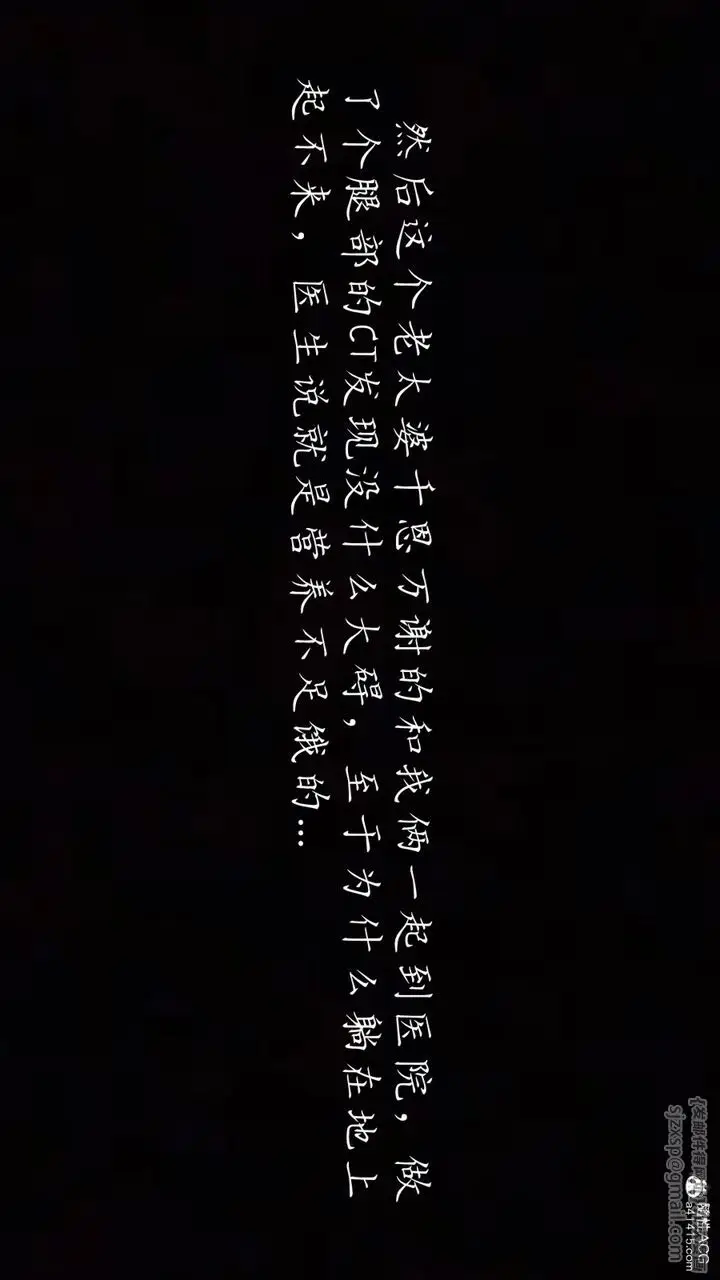 然后这个老太婆千恩万谢的和我俩一起到医院，做
了个腿部的CT发现没什么大碍，至于为什么躺在地上
起不来，医生说就是营养不足饿的...
sjzxsp@gmail.com
ACG
a41415.com